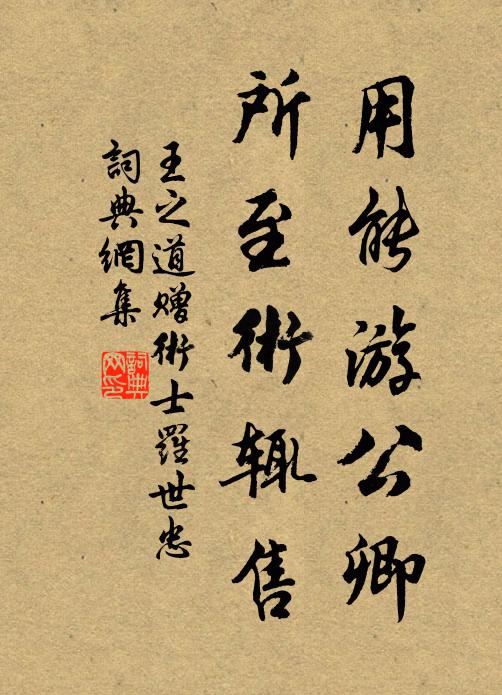 用能游公卿
所至術輒售
王之道贈術士羅世忠
詞典網集
詞典
网印